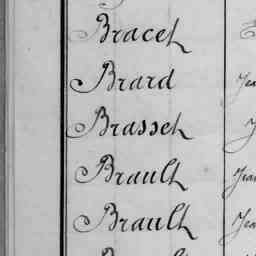 Bracet
Brard
Brasset
Brault
Brault